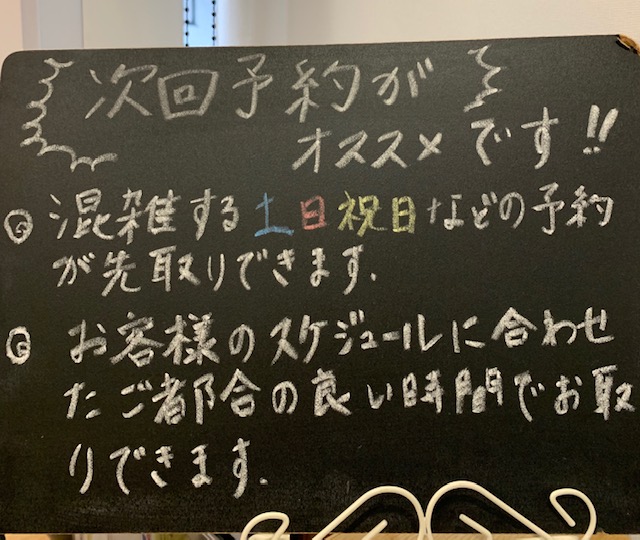 次回予約が
オススメです!!
混雑する土日祝日などの予約
が先取りできます.
お客様のスケジュールに合わせ
たご都合の良い時間でお取
りできます.